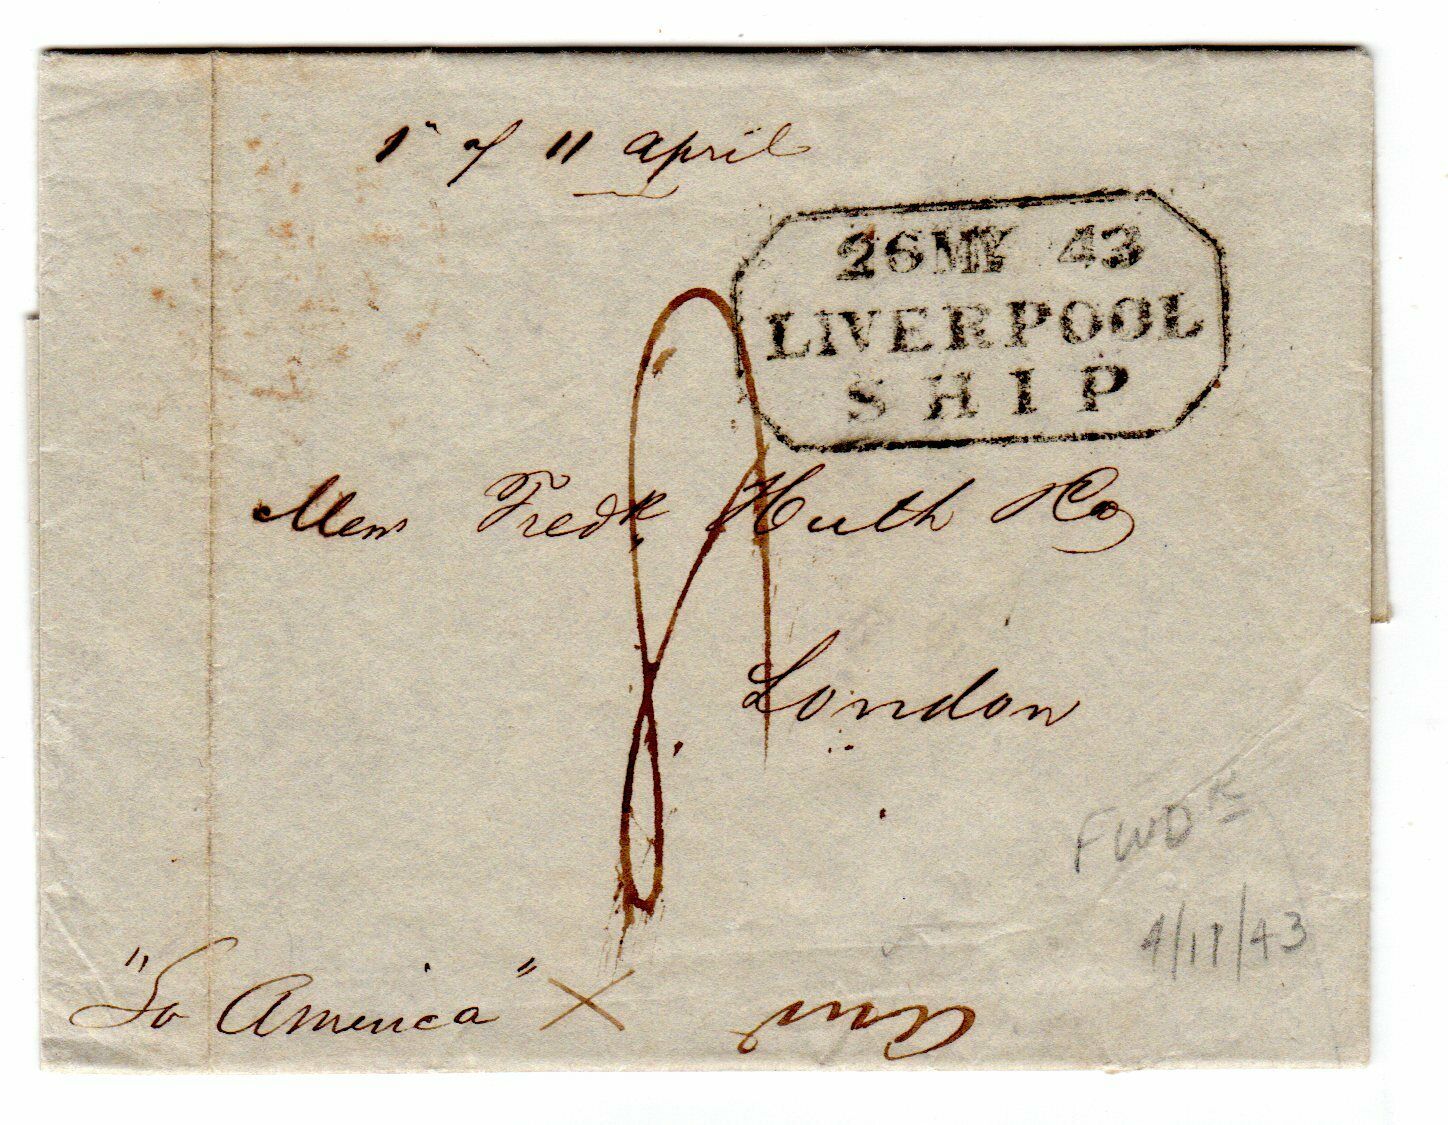 1" of 11 april
26 MY 43
LIVERPOOL
SHIP
8
Mess Fredk Huth & Co
London
FWDR
4/11/43
"So America" X